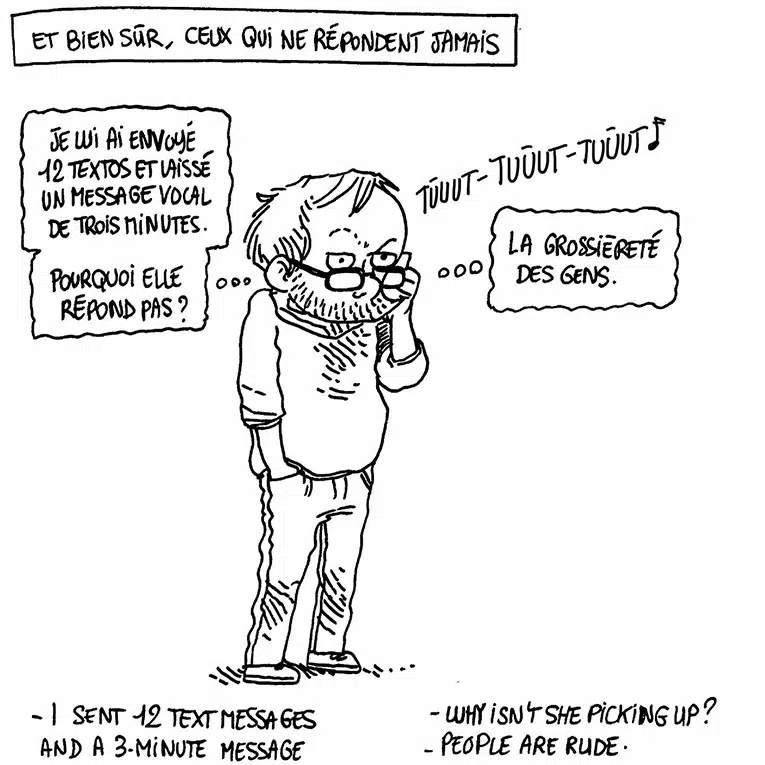 ET BIEN SÛR, CEUX QUI NE RÉPONDENT JAMAIS
JE LUI AI ENVOYÉ
12 TEXTOS ET LAISSÉ
UN MESSAGE VOCAL
DE TROIS MINUTES.
POURQUOI ELLE
RÉPOND PAS ?
TÛUUT-TUÛUT-TUÛUT♪
LA GROSSIÈRETÉ
DES GENS.
- I SENT 12 TEXT MESSAGES
AND A 3-MINUTE MESSAGE
- WHY ISN'T SHE PICKING UP?
- PEOPLE ARE RUDE.